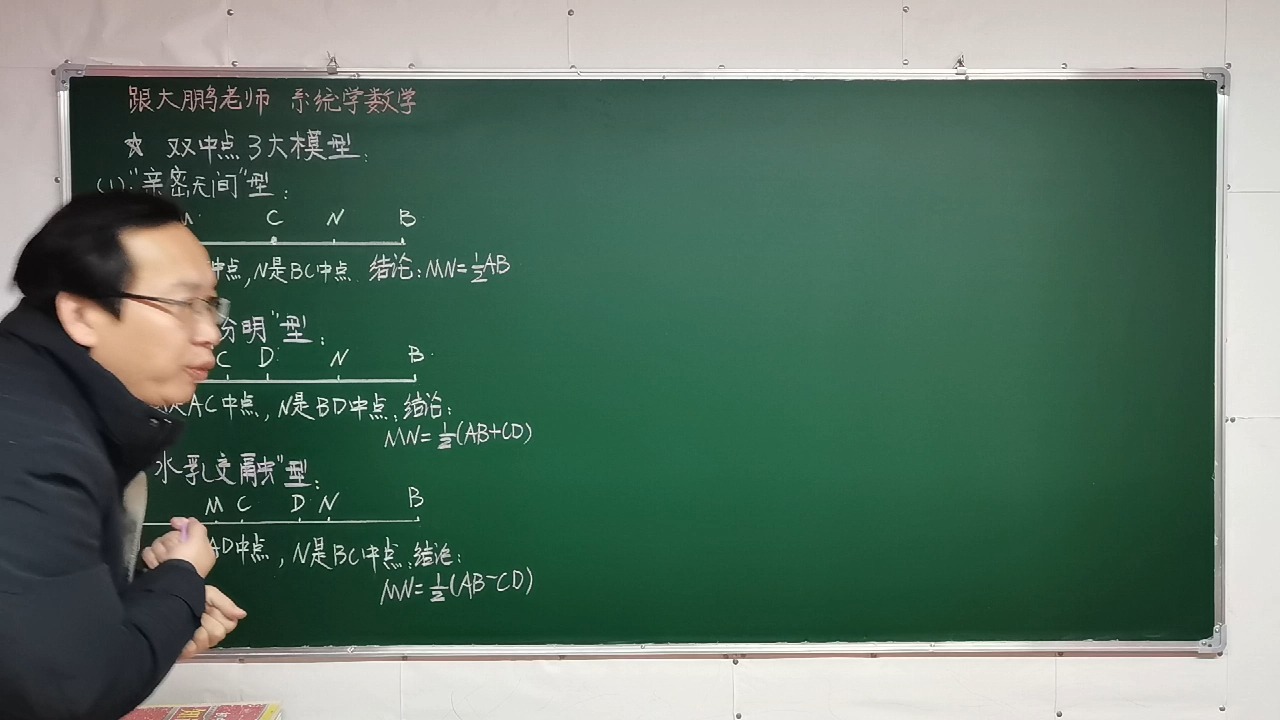 跟大鹏老师 系统学数学
☆ 双中点3大模型:
(1)."亲密无间"型:
M C N B
中点,N是BC中点. 结论:MN=½AB
分明"型:
C D N B
是AC中点,N是BD中点,结论:
MN=½(AB+CD)
水乳交融"型:
M C D N B
AD中点,N是BC中点.结论:
MN=½(AB-CD)